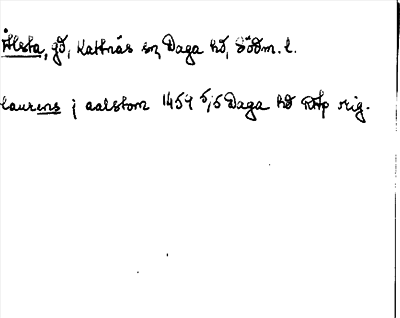 Ålsta, gd, Kattnäs sn, Daga hd, Södm. l.
laurens j aalstom 1454 5/5 Daga hd RAp orig.